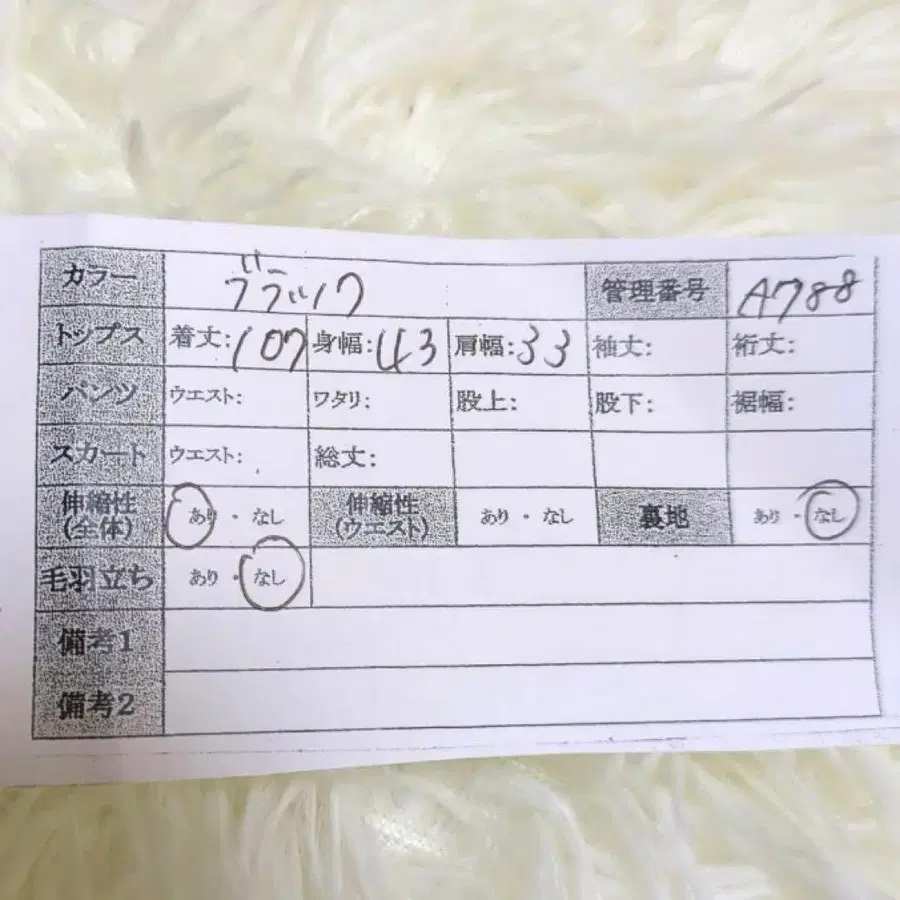 カラー ブラック 管理番号 A788
トップス 着丈:107 身幅:43 肩幅:33 袖丈: 裄丈:
パンツ ウエスト: ワタリ: 股上: 股下: 裾幅:
スカート ウエスト: 総丈:
伸縮性(全体) あり・なし 伸縮性(ウエスト) あり・なし 裏地 あり・なし
毛羽立ち あり・なし
備考1
備考2